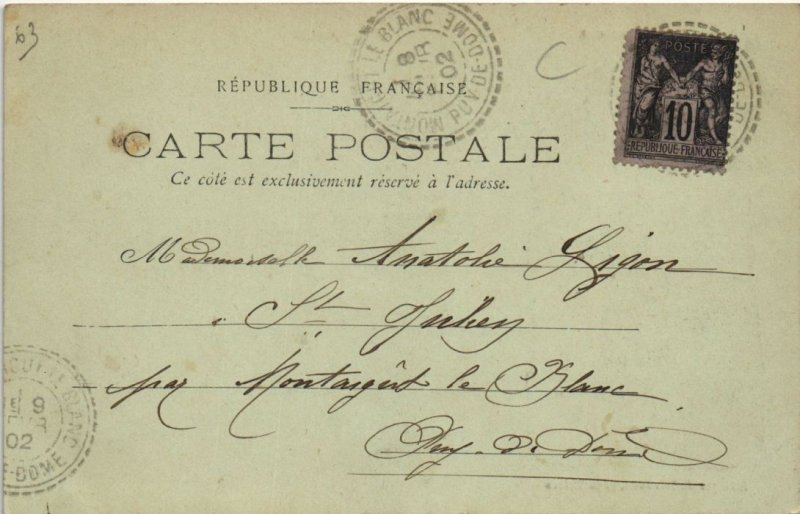 63
RÉPUBLIQUE FRANÇAISE
CARTE POSTALE
Ce côté est exclusivement réservé à l'adresse.
C
POSTE
10
REPUBLIQUE FRANÇAISE
LE BLANC PUY-DE-DOME
8
02
Mademoiselle Anatolie Gigon
St Julien
par Montaigût le Blanc
Puy-de-Dôme
LE BLANC
9
02
DOME